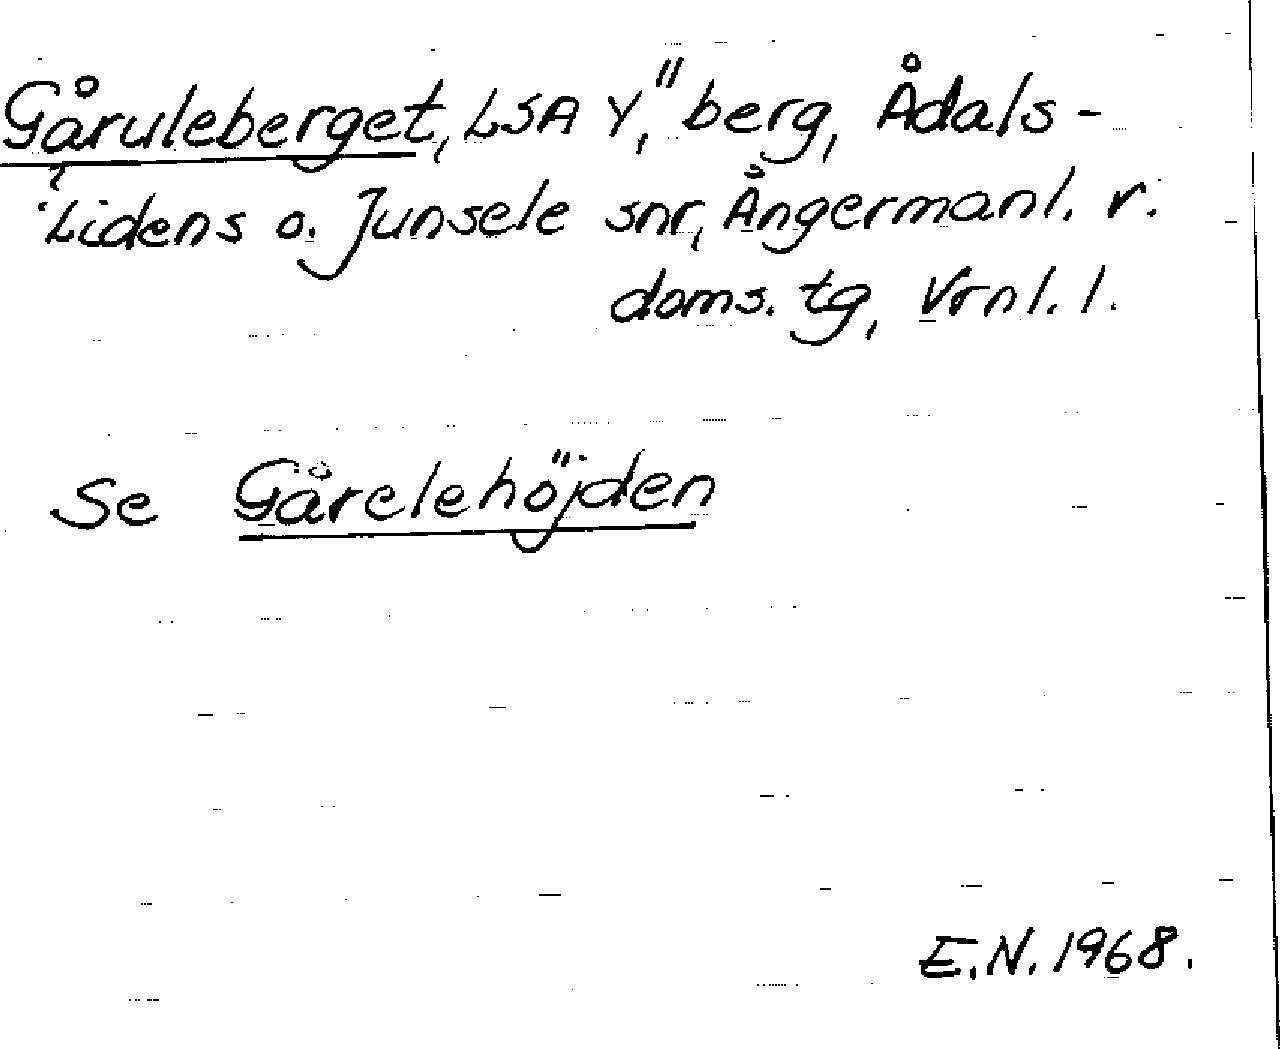 Gåruleberget, LSA Y," berg, Ådals-
Lidens o. Junsele snr, Ångermanl. v.
doms. tg, Vrnl. l.
Se Gårelehöjden
E.N. 1968.